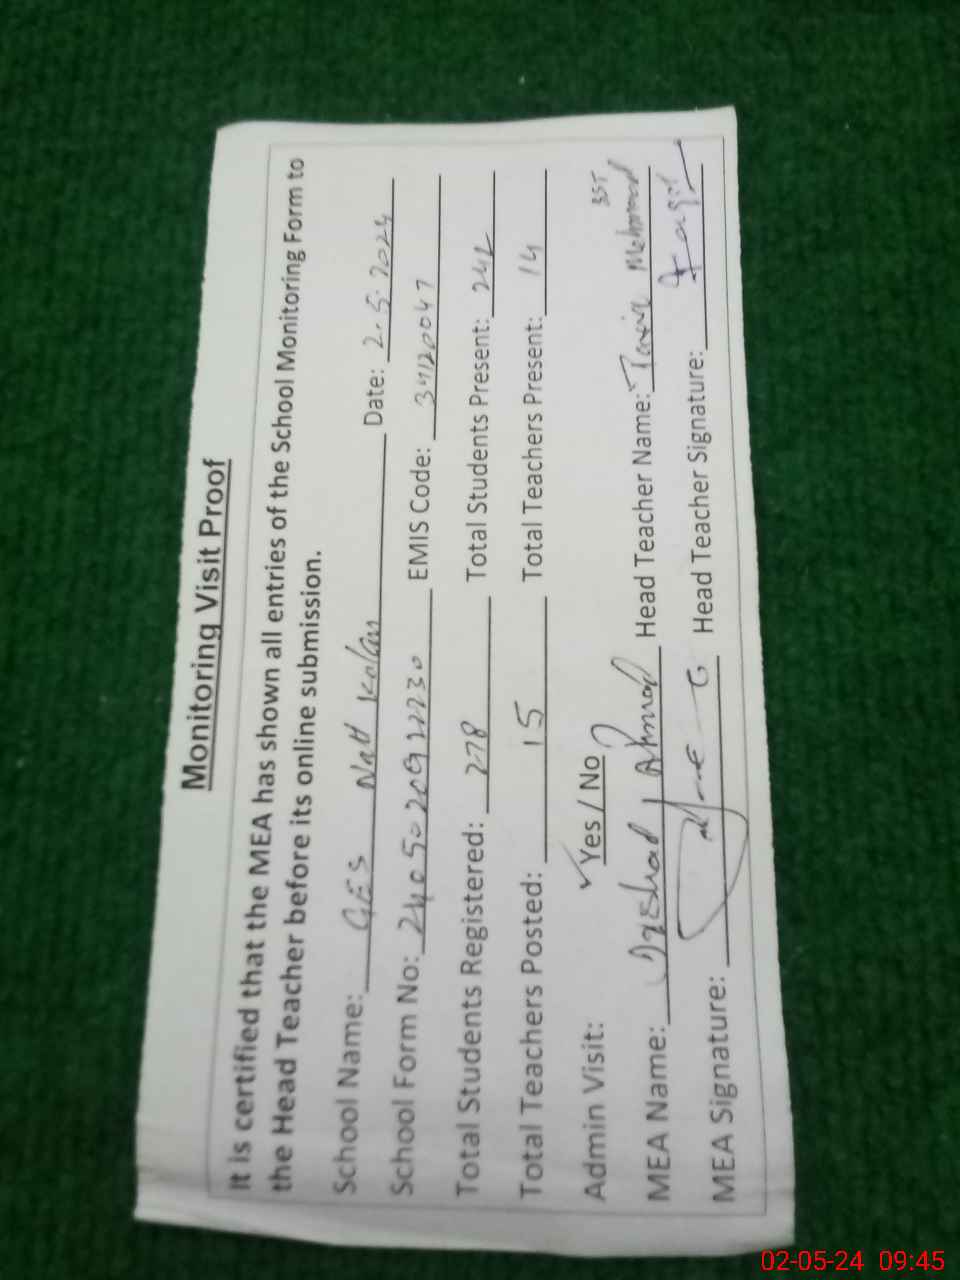 Monitoring Visit Proof
It is certified that the MEA has shown all entries of the School Monitoring Form to
the Head Teacher before its online submission.
School Name: GES Natt Kalan Date: 2.5.2024
School Form No: EMIS Code: 34120047
Total Students Registered: 278 Total Students Present: 242
Total Teachers Posted: 15 Total Teachers Present: 14
Admin Visit: ✓Yes / No
SST
MEA Name: Irshad Ahmad Head Teacher Name: Tariq Mehmood
MEA Signature: Head Teacher Signature:
02-05-24 09:45